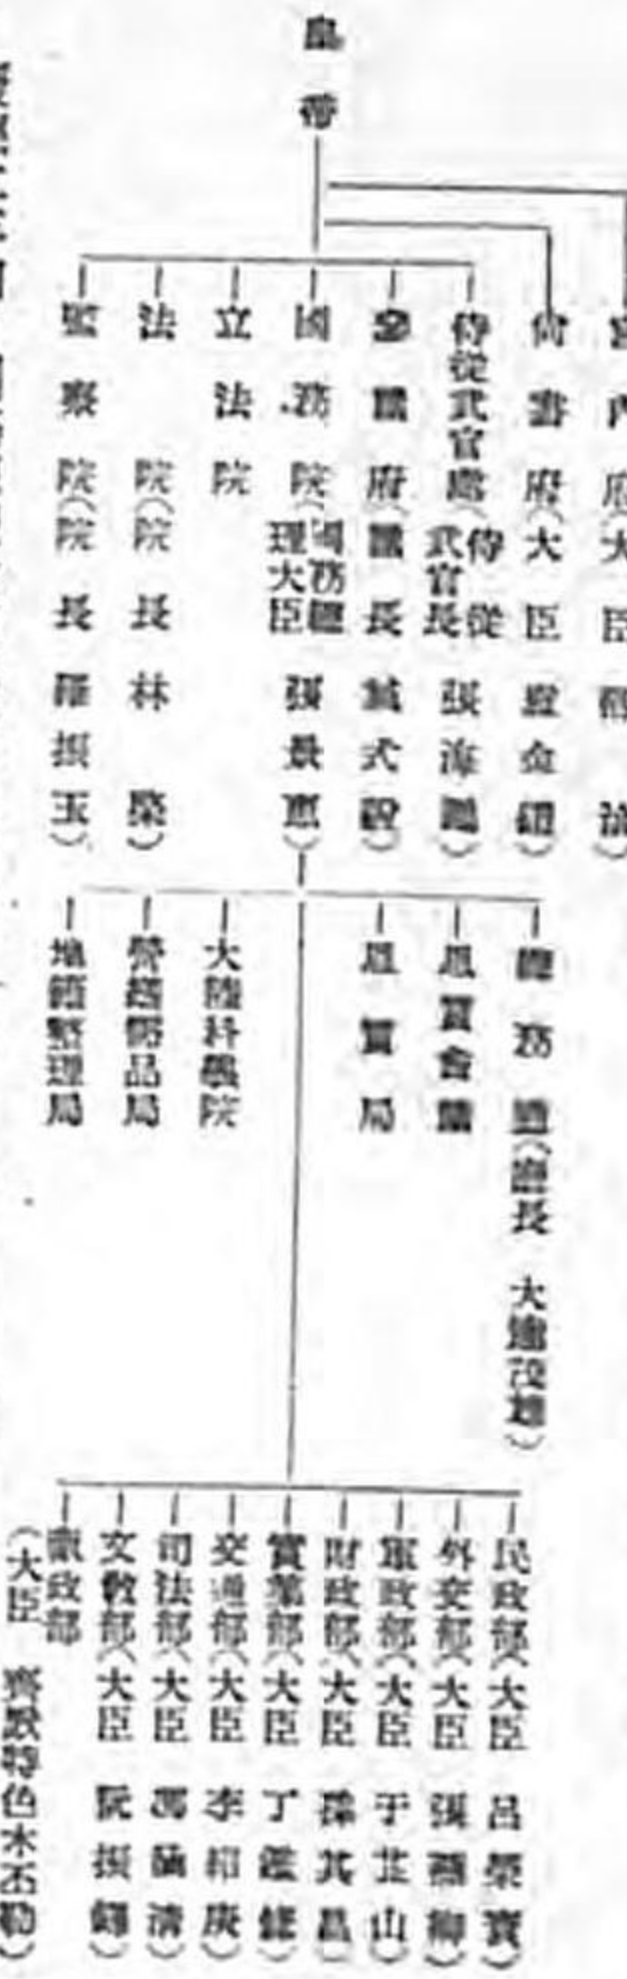 皇帝
宮內府(大臣 熙 洽
尚書府(大臣 袁金鎧)
侍從武官處(侍從武官長 張海鵬)
參議府(議長 臧式毅)
國務院(國務總理大臣 張景惠)
立法院
法院(院長 林棨)
監察院(院長 羅振玉)
總務廳(廳長 大達茂雄)
恩賞會議
恩賞局
大陸科學院
營繕需品局
地籍整理局
民政部(大臣 呂榮寰)
外交部(大臣 張燕卿)
軍政部(大臣 于芷山)
財政部(大臣 孫其昌)
實業部(大臣 丁鑑修)
交通部(大臣 李紹庚)
司法部(大臣 馮涵清)
文敎部(大臣 阮振鐸)
蒙政部
(大臣 齊默特色木丕勒)